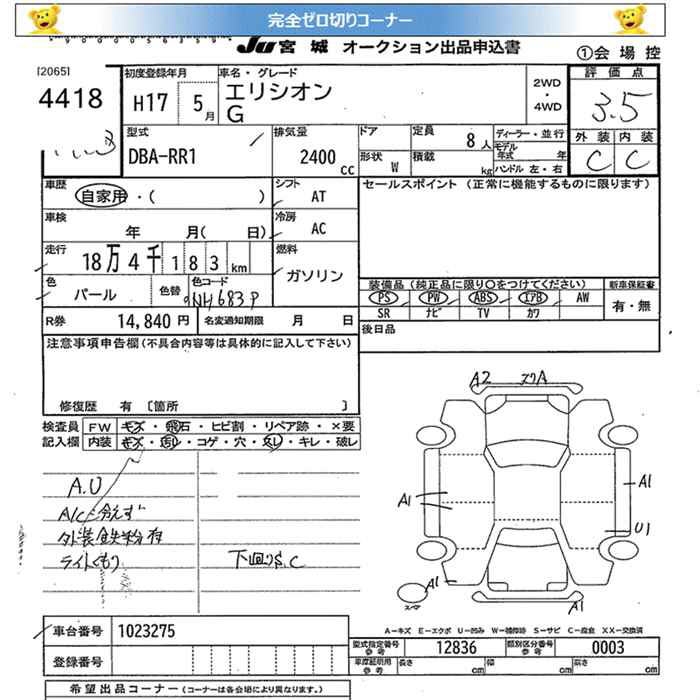 完全ゼロ切りコーナー
JU 宮城 オークション出品申込書
①会場控
[2065]
4418
初度登録年月
H17 5月
車名・グレード
エリシオン
G
2WD
・
4WD
評価点
3.5
外装 内装
C C
型式
DBA-RR1
排気量
2400 CC
ドア
形状 W
定員 8人
積載 kg
ディーラー・並行
モデル年式 年
ハンドル 左・右
車歴 自家用・( )
シフト AT
セールスポイント (正常に機能するものに限ります)
車検 年 月( 日)
冷房 AC
走行 18万4千183km
燃料 ガソリン
色 パール 色替 色コード NH683P
装備品 (純正品に限り○をつけてください)
新車保証書
PS PW ABS エアB AW
SR ナビ TV カワ
有・無
R券 14,840円 名変通知期限 月 日
後日品
注意事項申告欄(不具合内容等は具体的に記入して下さい)
修復歴 有 〔箇所 〕
検査員記入欄
FW キズ・飛石・ヒビ割・リペア跡・×要
内装 キズ・汚れ・コゲ・穴・スレ・キレ・破レ
A2 スリA
A.U
A/C冷えず
外装鉄粉有
ライトくもり
下回りS.C
A1
A1
U1
A1
A1
スペア
A－キズ E－エクボ U－凹み W－補修跡 S－サビ C－腐食 XX－交換済
車台番号 1023275
登録番号
型式指定番号 参考 12836
類別区分番号 参考 0003
車庫証明用 参考 長さ cm 幅 cm 高さ cm
希望出品コーナー (コーナーは各会場により異なります。)